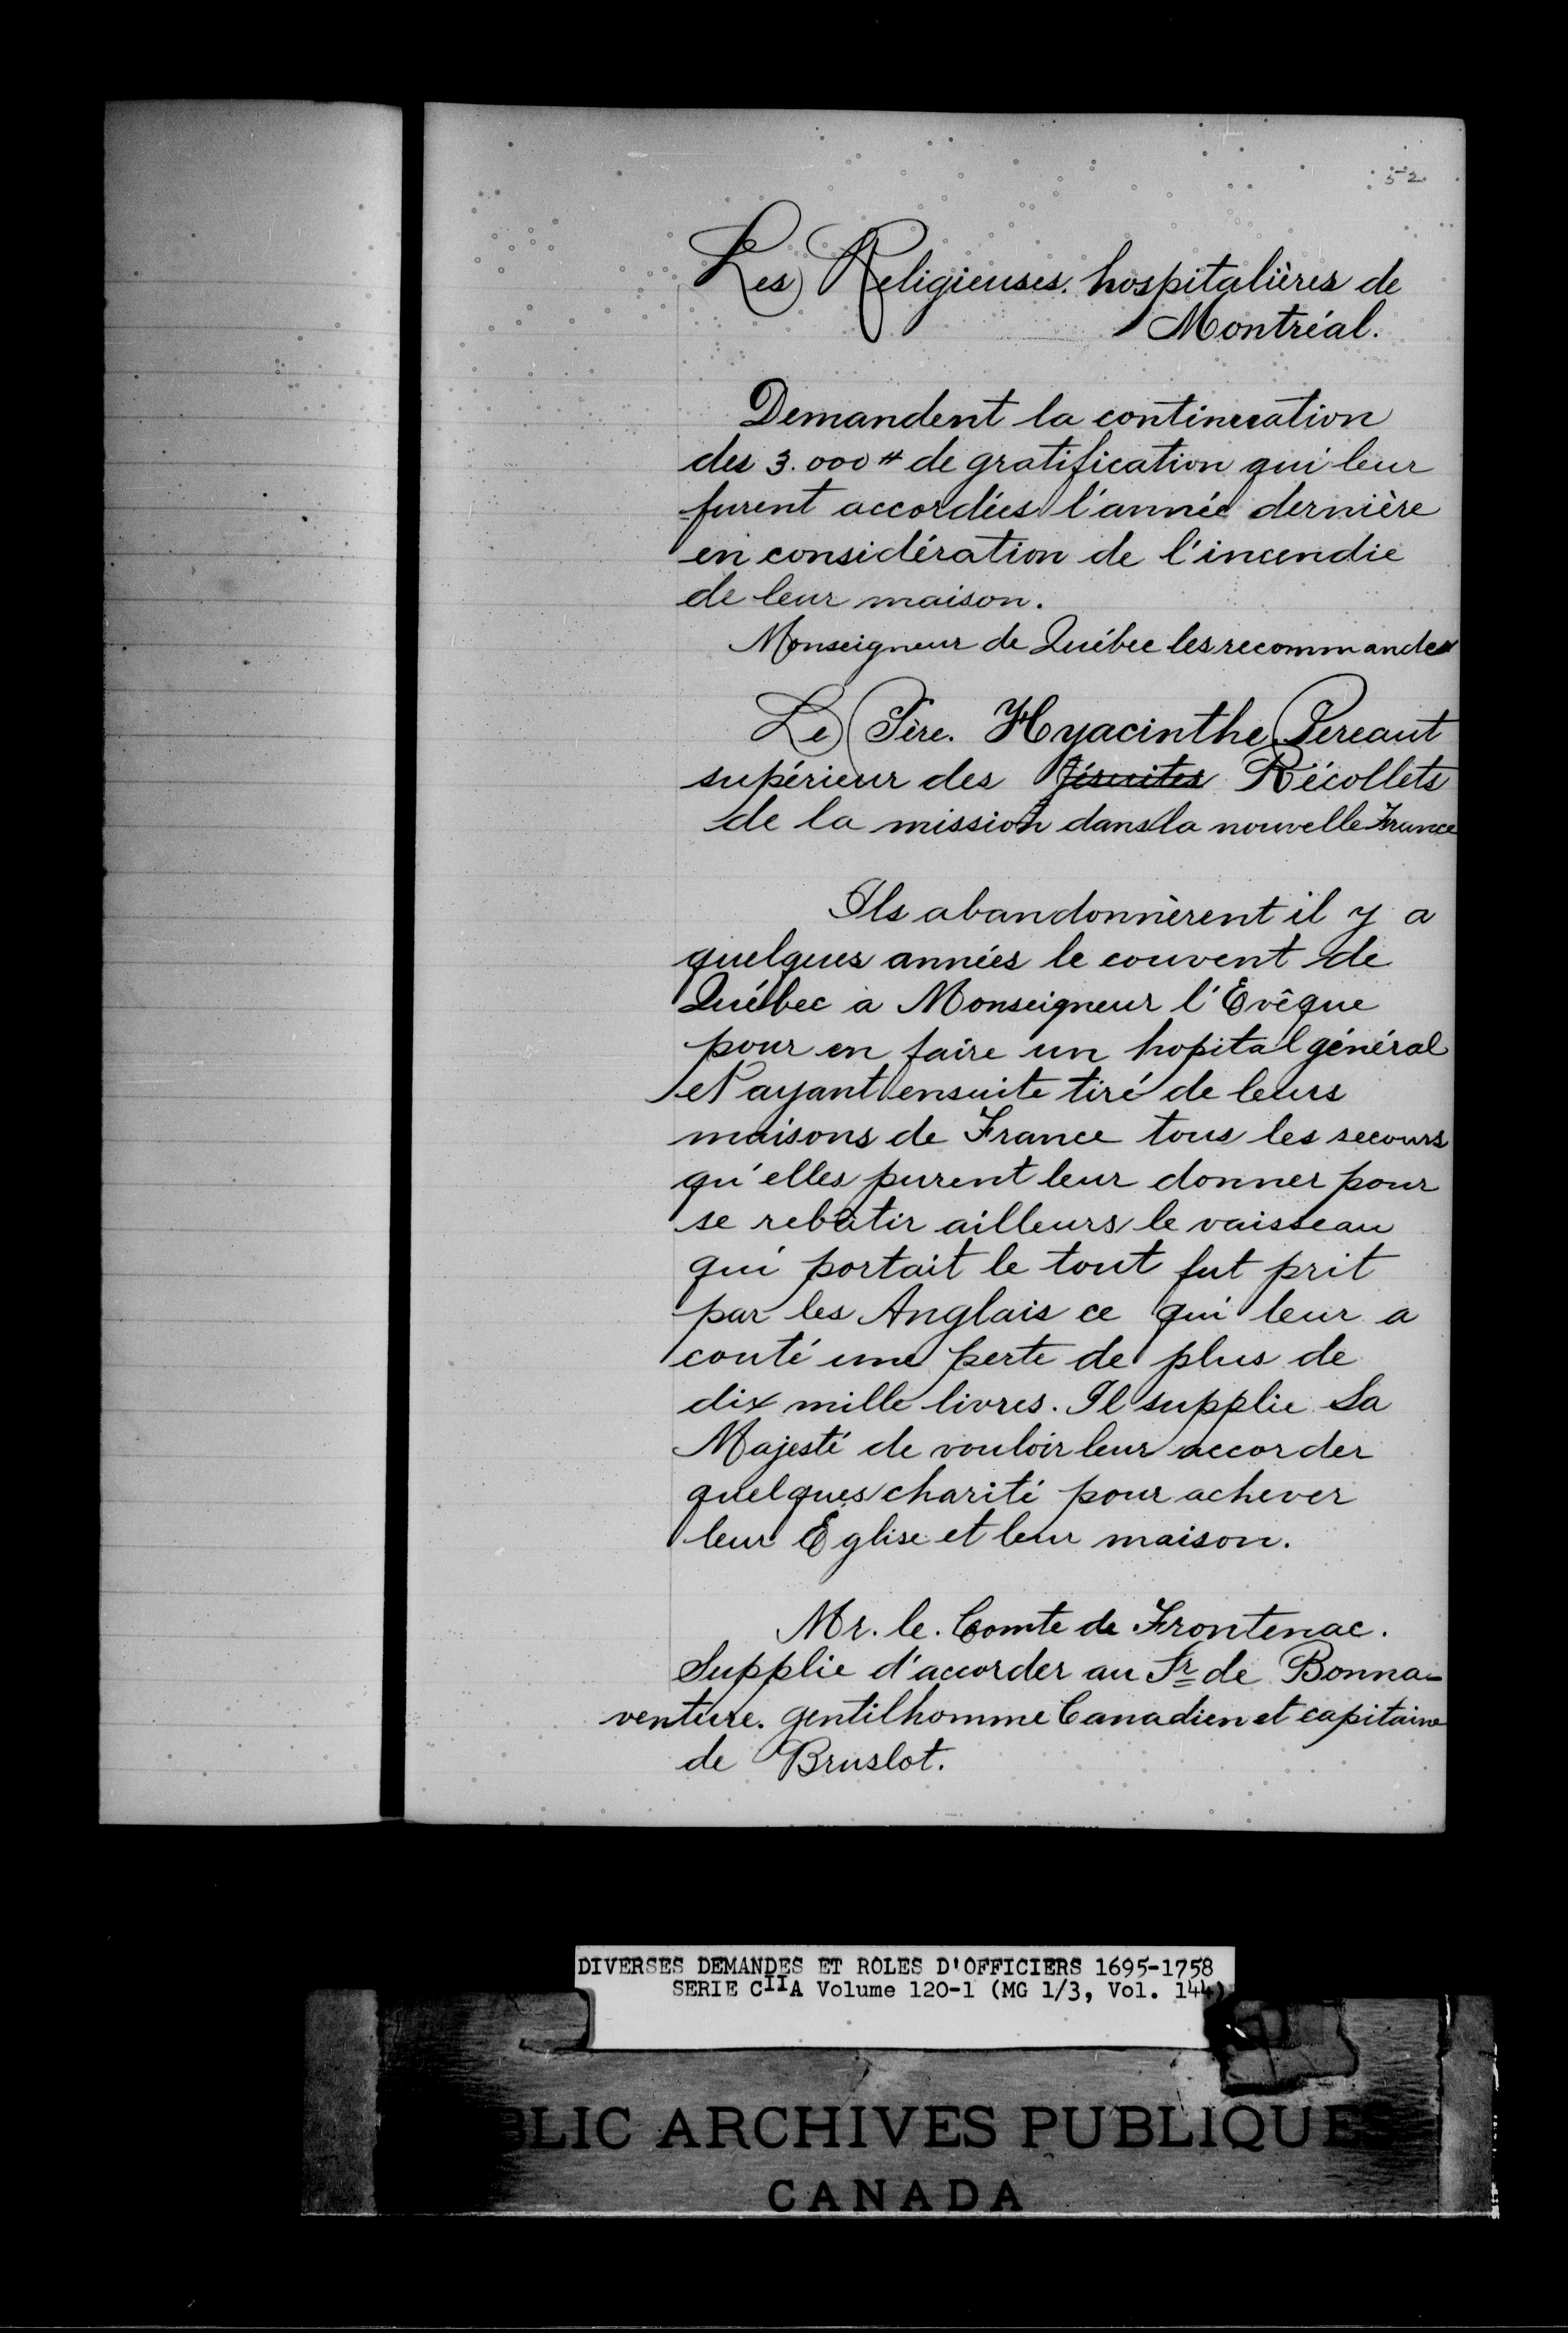 52
Les Religieuses. hospitalières de
Montréal.
Demandent la continuation
des 3.000 # de gratification qui leur
furent accordées l'année dernière
en considération de l'incendie
de leur maison.
Monseigneur de Québec les recommande
Le Père. Hyacinthe Pereaut
supérieur des Jésuites Récollets
de la mission dans la nouvelle France
Ils abandonnèrent il y a
quelques années le couvent de
Québec a Monseigneur l'Evêque
pour en faire un hopital général
et ayant ensuite tiré de leurs
maisons de France tous les secours
qu'elles purent leur donner pour
se rebâtir ailleurs le vaisseau
qui portait le tout fut prit
par les Anglais ce qui leur a
couté une perte de plus de
dix mille livres. Il supplie Sa
Majesté de vouloir leur accorder
quelques charité pour achever
leur Eglise et leur maison.
Mr. le. Comte de Frontenac.
Supplie d'accorder au Sr de Bonna-
venture. gentilhomme Canadien et capitaine
de Bruslot.
DIVERSES DEMANDES ET ROLES D'OFFICIERS 1695-1758
SERIE CIIA Volume 120-1 (MG 1/3, Vol. 144)
BLIC ARCHIVES PUBLIQUES
CANADA